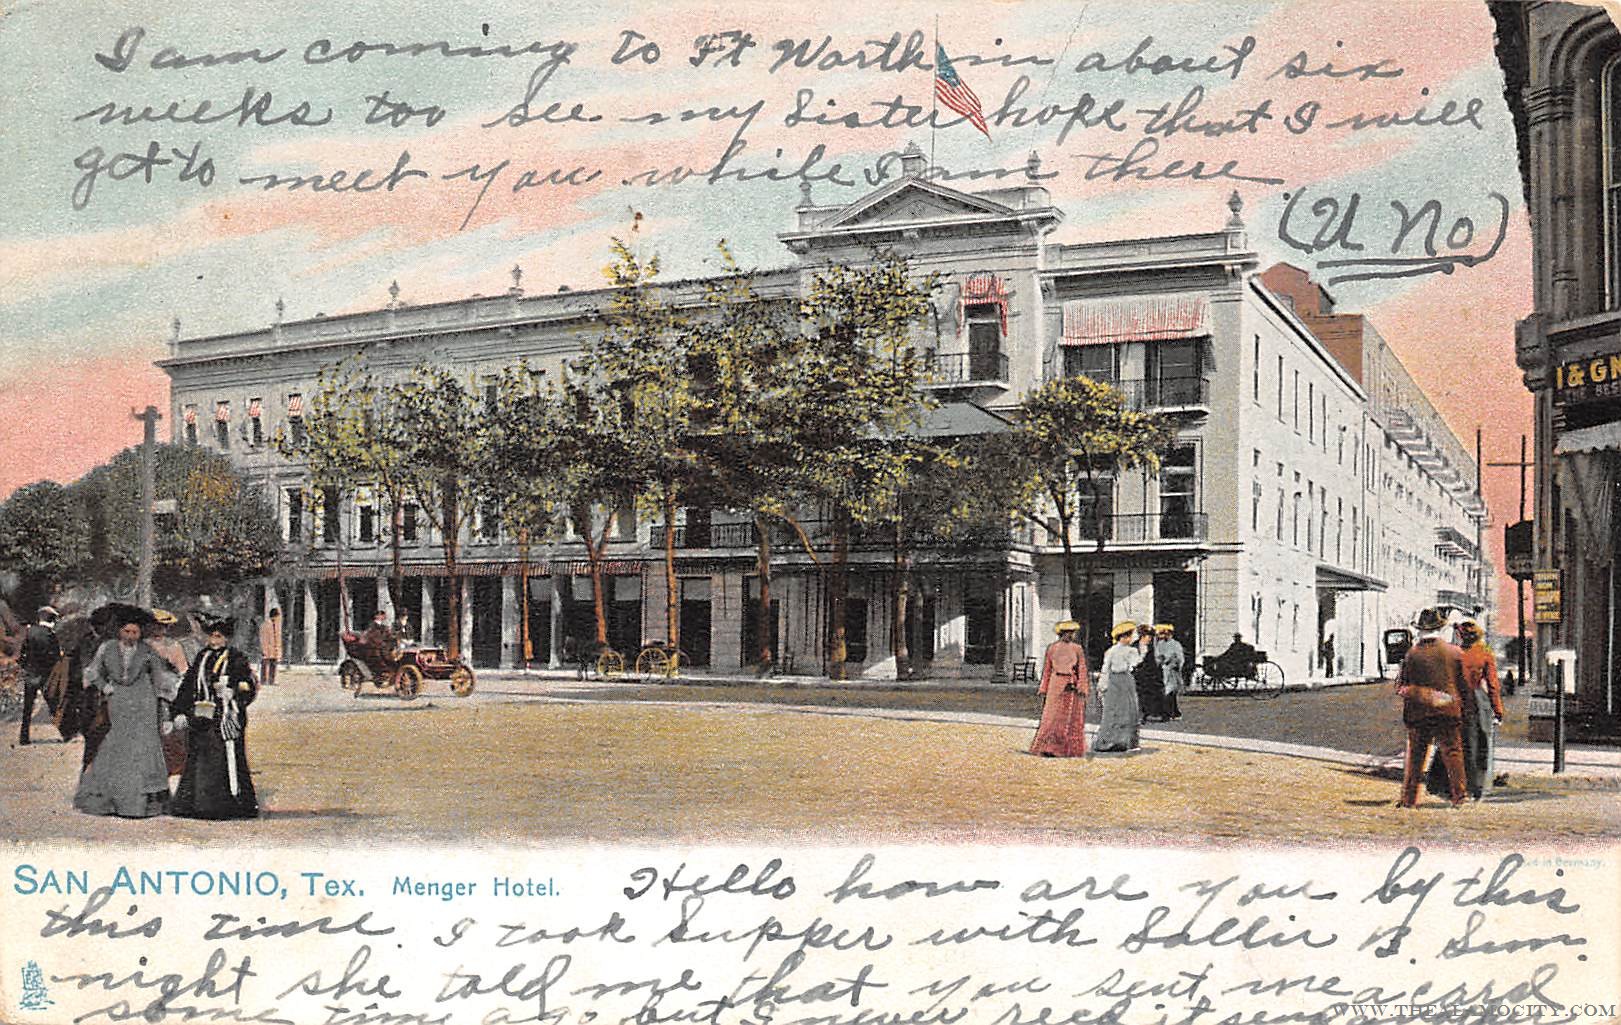 I am coming to Ft Worth in about six
weeks too see my Sister hope that I will
get to meet you while I am there
(U No)
& G
SAN ANTONIO, Tex. Menger Hotel.
in Germany.
Hello how are you by this
this time. I took Supper with Sallie B. Sun.
night she told me that you sent me a card
some time ago but I never recd it
WWW.THEALAMOCITY.COM